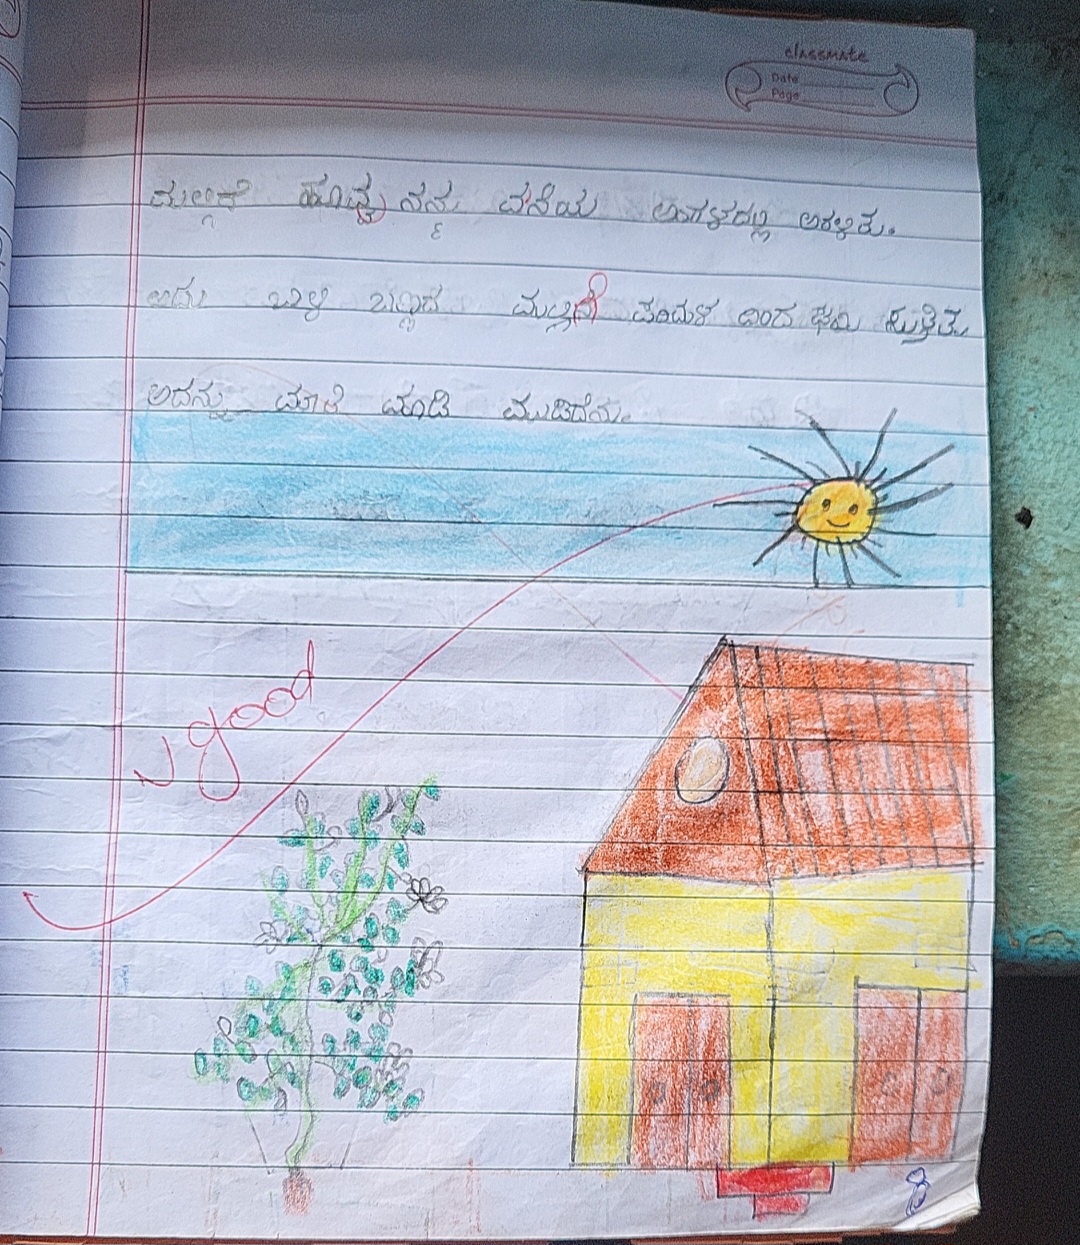 classmate
Date
Page
ಮಲ್ಲಿಗೆ ಹೂವು ನನ್ನ ಮನೆಯ ಅಂಗಳದಲ್ಲಿ ಅರಳಿತು.
ಅದು ಬಿಳಿ ಬಣ್ಣದ ಮಲ್ಲಿಗೆ ಪರಿಮಳ ದಿಂದ
ಅದನ್ನು ಮಾಲೆ ಮಾಡಿ ಮುಡಿದೆನು.
good
8